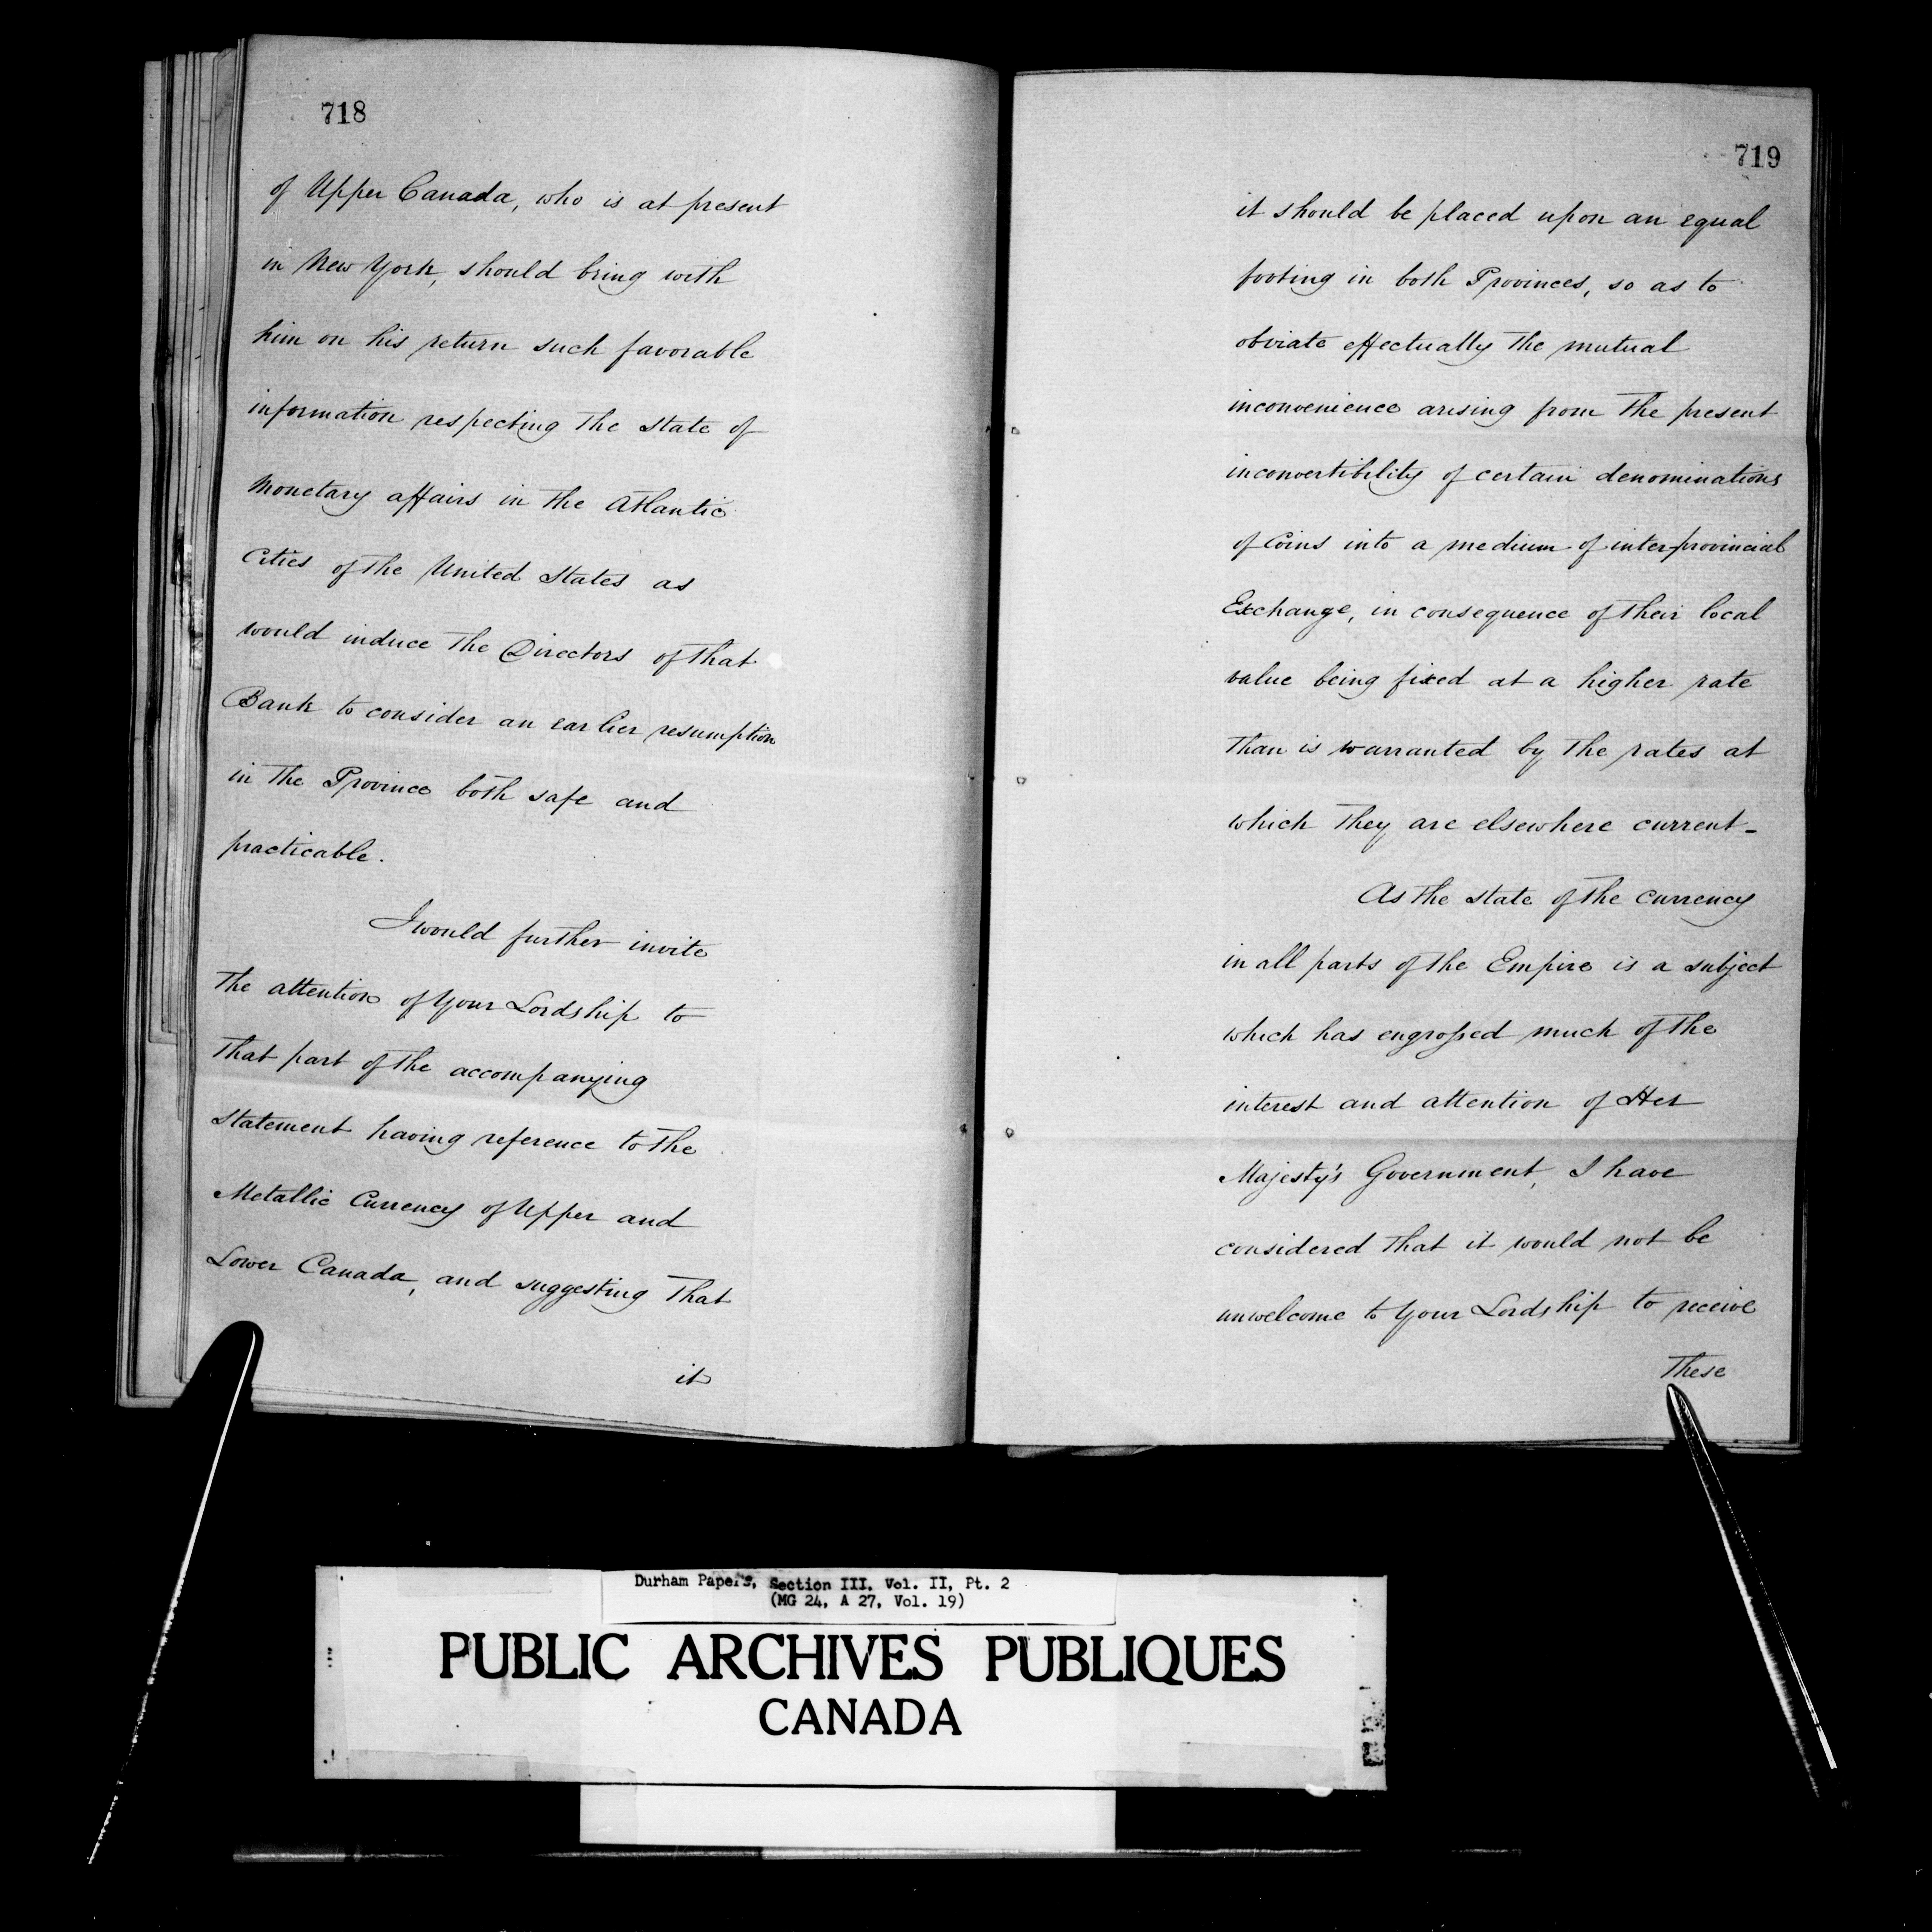 718
of Upper Canada, who is at present
in New York, should bring with
him on his return such favorable
information respecting the state of
Monetary affairs in the Atlantic
Cities of the United States as
would induce the Directors of that
Bank to consider an earlier resumption
in the Province both safe and
practicable.
I would further invite
the attention of Your Lordship to
that part of the accompanying
statement having reference to the
Metallic Currency of Upper and
Lower Canada, and suggesting that
it
719
it should be placed upon an equal
footing in both Provinces, so as to
obviate effectually the mutual
inconvenience arising from the present
inconvertibility of certain denominations
of Coins into a medium of interprovincial
Exchange, in consequence of their local
value being fixed at a higher rate
than is warranted by the rates at
which they are elsewhere current-
As the state of the currency
in all parts of the Empire is a subject
which has engrossed much of the
interest and attention of Her
Majesty's Government, I have
considered that it would not be
unwelcome to Your Lordship to receive
These
Durham Papers, Section III. Vol. II, Pt. 2
(MG 24, A 27, Vol. 19)
PUBLIC ARCHIVES PUBLIQUES
CANADA